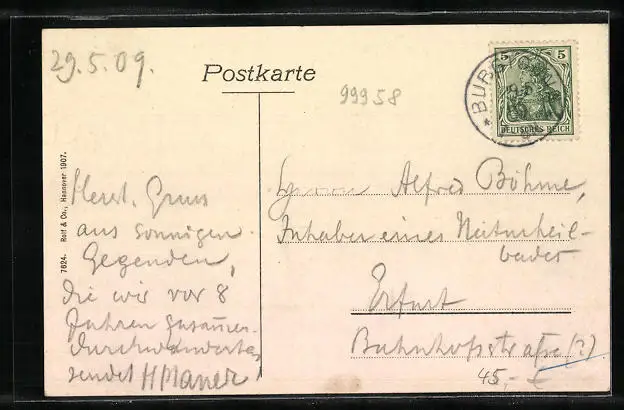 29.5.09.
Postkarte
99958
5 5
DEUTSCHES REICH
* BURG
7624. Rolf & Co., Hannover 1907.
Herzl. Gruss
aus sonnigen
Gegenden,
die wir vor 8
Jahren zusammen
durchwanderten
sendet
Herrn Alfred Böhme,
Inhaber eines Naturheil-
bades
Erfurt
Bahnhofsstraße (?)
45,-